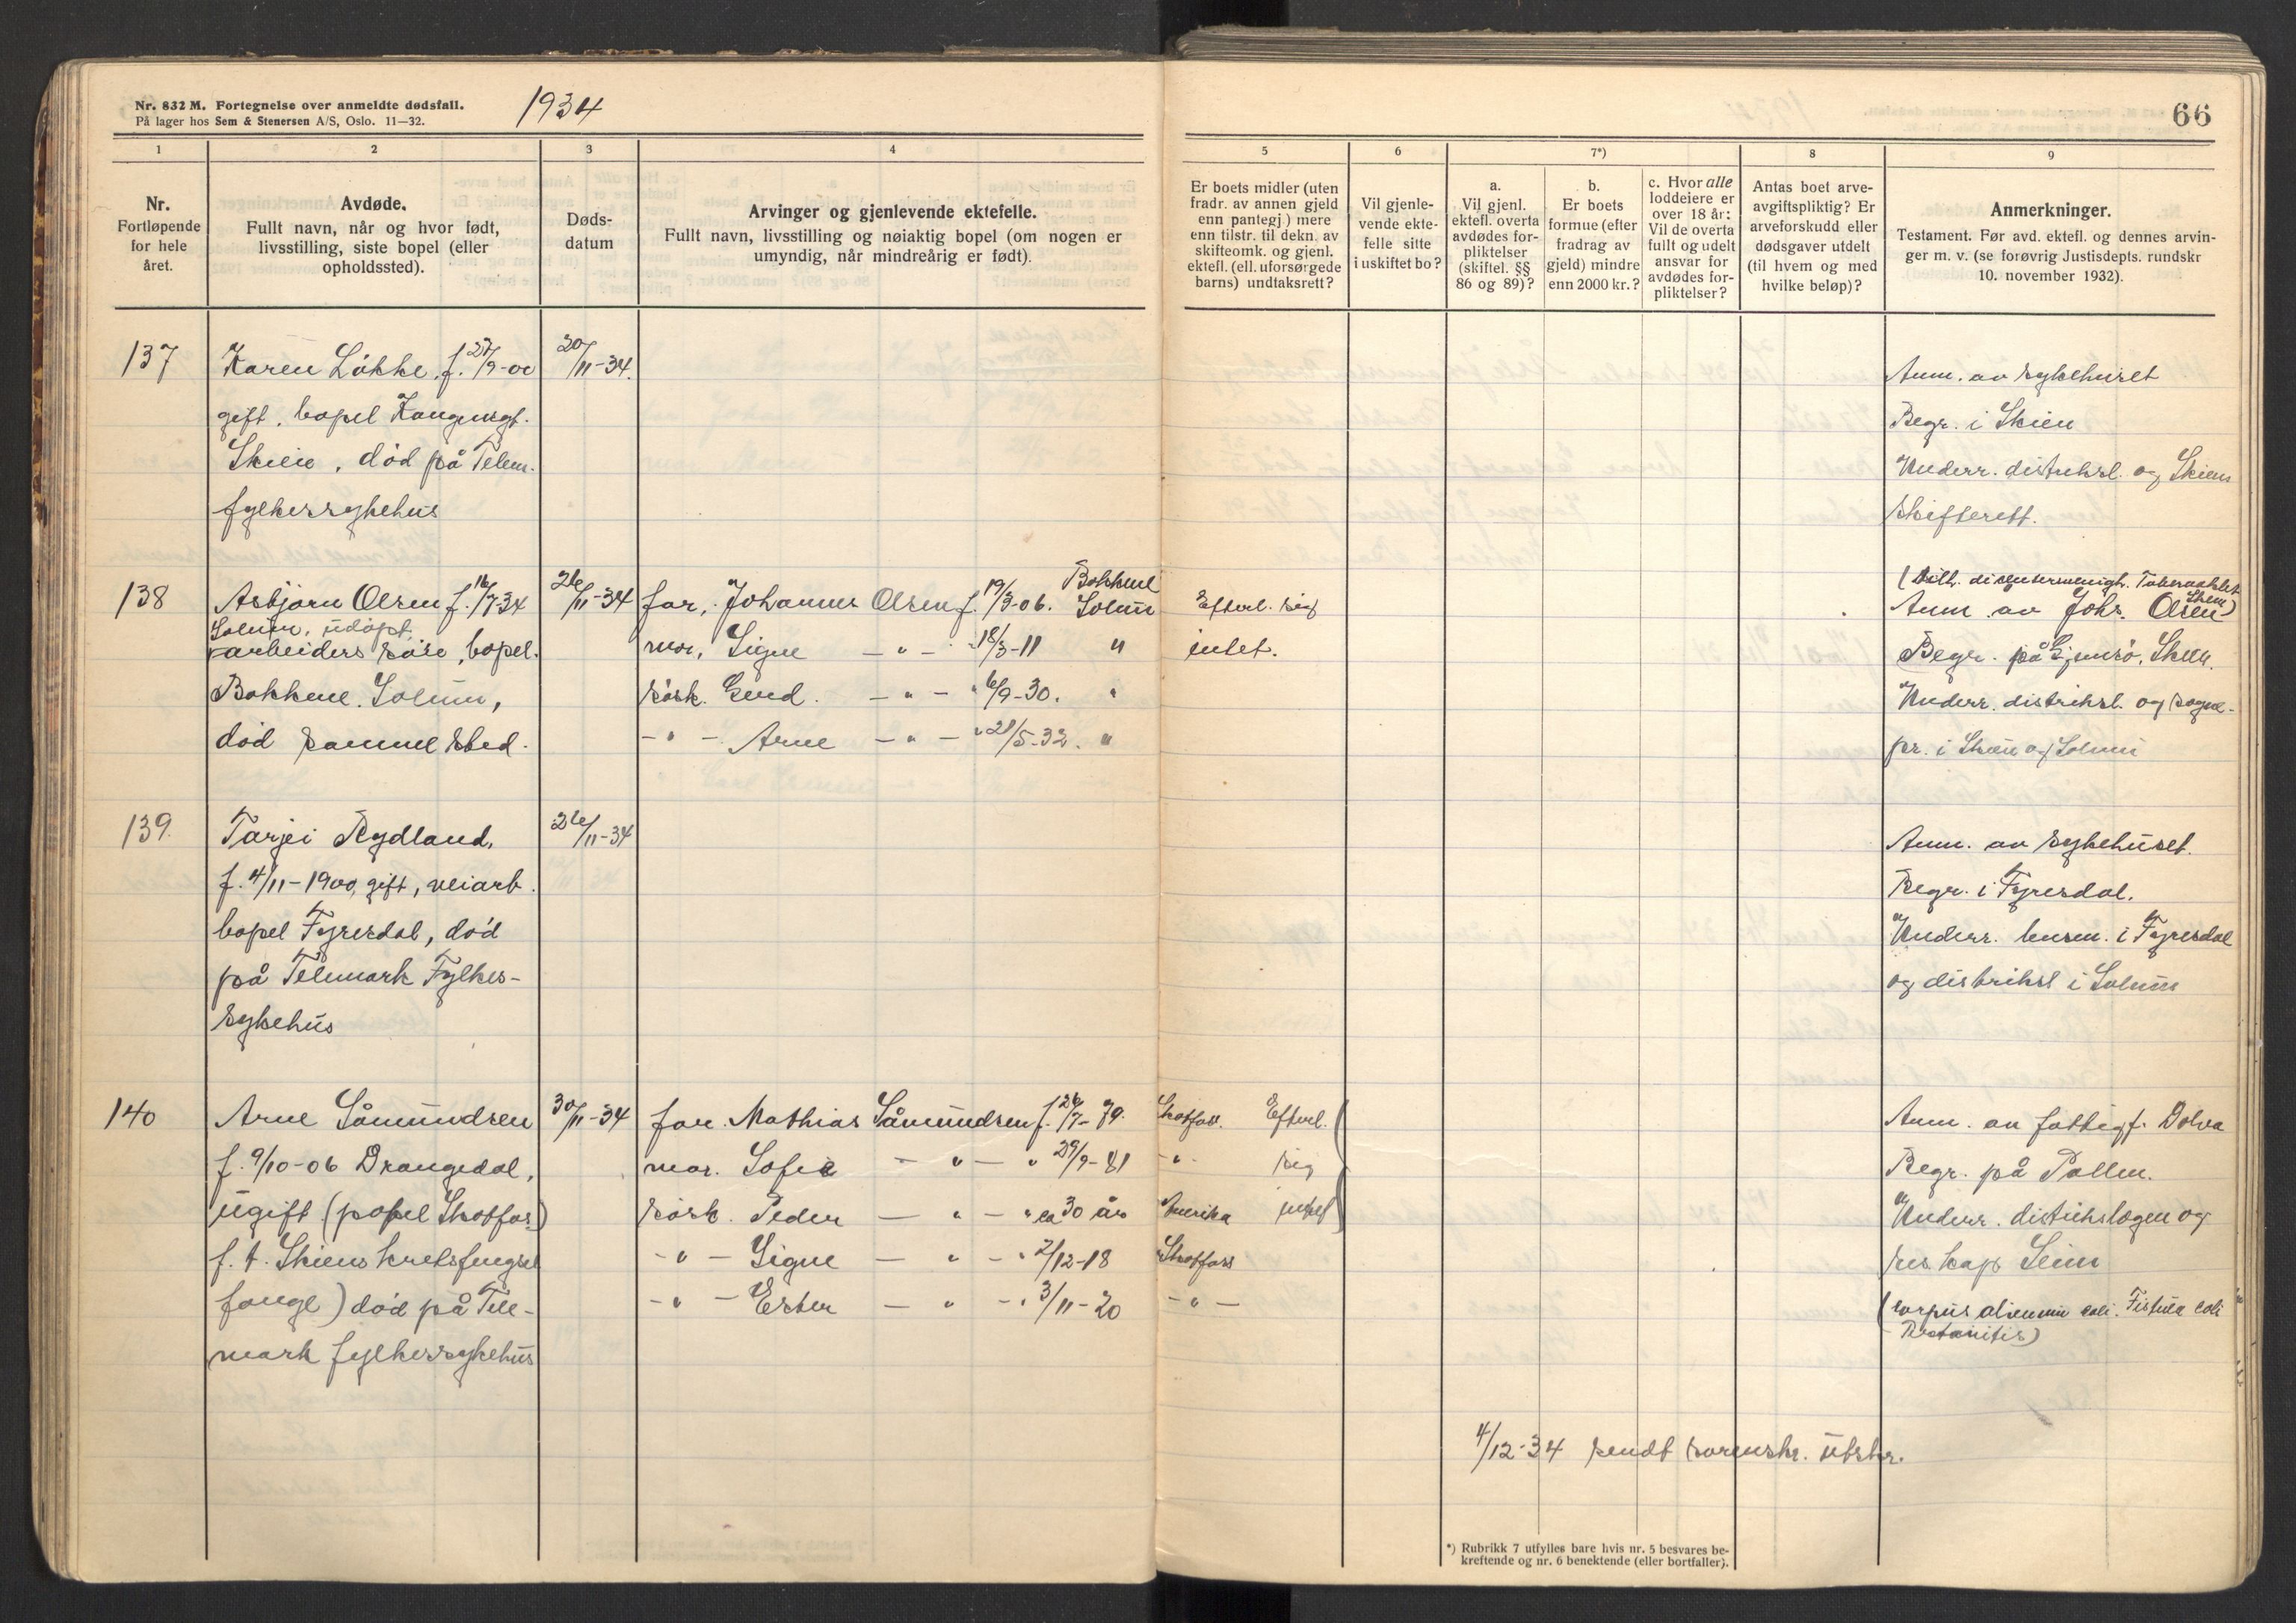 Nr. 832 M. Fortegnelse over anmeldte dødsfall.
På lager hos Sem & Stenersen A/S, Oslo. 11—32.
1934
66
1
2
3
4
5
6
7*)
8
9
Nr.
Fortløpende
for hele
året.
Avdøde.
Fullt navn, når og hvor født,
livsstilling, siste bopel (eller
opholdssted).
Døds-
datum
Arvinger og gjenlevende ektefelle.
Fullt navn, livsstilling og nøiaktig bopel (om nogen er
umyndig, når mindreårig er født).
Er boets midler (uten
fradr. av annen gjeld
enn pantegj.) mere
enn tilstr. til dekn. av
skifteomk. og gjenl.
ektefl. (ell. uforsørgede
barns) undtaksrett?
Vil gjenle-
vende ekte-
felle sitte
i uskiftet bo?
a.
Vil gjenl.
ektefl. overta
avdødes for-
pliktelser
(skiftel. §§
86 og 89)?
b.
Er boets
formue (efter
fradrag av
gjeld) mindre
enn 2000 kr.?
c. Hvor alle
loddeiere er
over 18 år:
Vil de overta
fullt og udelt
ansvar for
avdødes for-
pliktelser?
Antas boet arve-
avgiftspliktig? Er
arveforskudd eller
dødsgaver utdelt
(til hvem og med
hvilke beløp)?
Anmerkninger.
Testament. Før avd. ektefl. og dennes arvin-
ger m. v. (se forøvrig Justisdepts. rundskr
10. november 1932).
137
Karen Løkke, f. 27/9-00
gift, bopel Kongensgt.
Skien, død på Telem.
fylkessykehus
20/11-34.
Anm. av sykehuset
Begr. i Skien
Underr. distriksl. og Skiens
skifterett.
138
Asbjørn Olsen f. 16/7-34
Solum, udøpt
arbeiders søn, bopel.
Bakkene, Solum,
død samme sted.
26/11-34
far, Johannes Olsen f. 19/3-06. Bakkene Solum
mor, Signe — " — " 18/3-11 "
søsk. Gerd. — " — " 6/9-30. "
— " — Arne — " — " 21/5-32. "
Efterl. sig
intet.
Tabernaklet
Skien)
Anm av Johs. Olsen
Begr. på Gjemsø, Skien.
Underr. distriksl. og sogne-
pr. i Skien og Solum
139.
Tarjei Rydland,
f. 4/11-1900, gift, veiarb.
bopel Fyresdal, død
på Telemark Fylkes-
sykehus
26/11-34
Anm. av sykehuset.
Begr. i Fyresdal.
Underr. lensm. i Fyresdal
og distriksl i Solum
140
Arne Såmundsen
f. 9/10-06 Drangedal,
ugift (bopel Skotfos)
f. t. Skiens kretsfengsel
fange) død på Tele-
mark fylkessykehus
30/11-34
far. Mathias Såmundsen f. 26/7-79. Skotfoss. Efterl.
mor. Sofie — " — " 29/9-81 — " — sig
søsk. Peder — " — " ca 30 år Amerika intet
— " — Signe — " — " 2/12-18 Skotfoss
— " — Ester — " — " 3/11-20 — " —
Anm. av fattigf. Dolva
Begr. på Pollen.
Underr. distrikslægen og
res kap Seim
(corpus alienum coli. Fistula coli
4/12-34 sendt sorenskr. utskr.
*) Rubrikk 7 utfylles bare hvis nr. 5 besvares be-
kreftende og nr. 6 benektende (eller bortfaller).